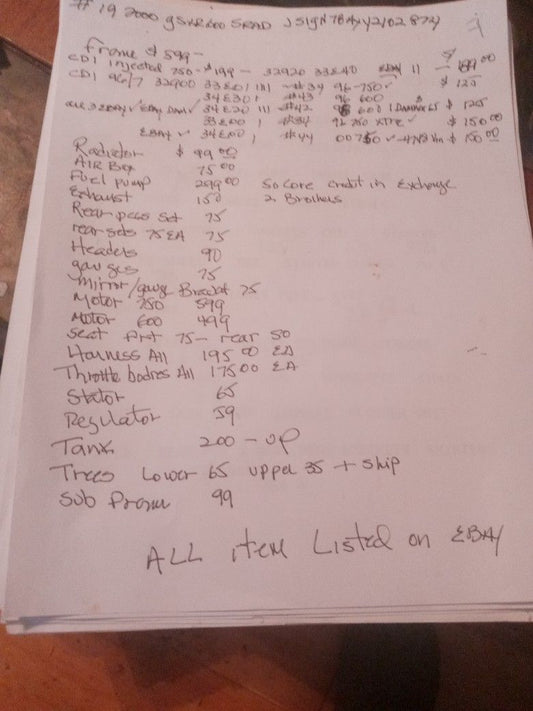 # 19 2000 GSXR600 SRAD JS1GN78A
Frame $ 599-
CDI Injected 750- $199- 32920 33E40 EBAY 11 - 00
CDI 96/7 32900 33E01 111 #34 96-750 ✓ $ 125
34E301 #43 96 600 $
ALL 3 EBAY ✓ EBAY ✓ 34E20 111 #42 600 1 $ 125
33E00 1 #34 750 ✓ $ 150 00
EBAY ✓ 34E00 1 #44 00750 ✓ $ 150 00
Radiator $ 99 00
AIR Box 75 00
Fuel pump 299 00 50 Core credit in Exchange
Exhaust 150 2. Brothers
Rear pegs set 75
rear sets 75 EA 75
Headers 90
gauges 75
mirror/gauge Bracket 75
Motor 750 599
Motor 600 499
Seat frnt 75- rear 50
Harness All 195 00 EA
Throttle bodies All 175 00 EA
Stator 65
Regulator 59
Tank 200 - up
Trees Lower 65 upper 35 + Ship
Sub frame 99
ALL item Listed on EBAY